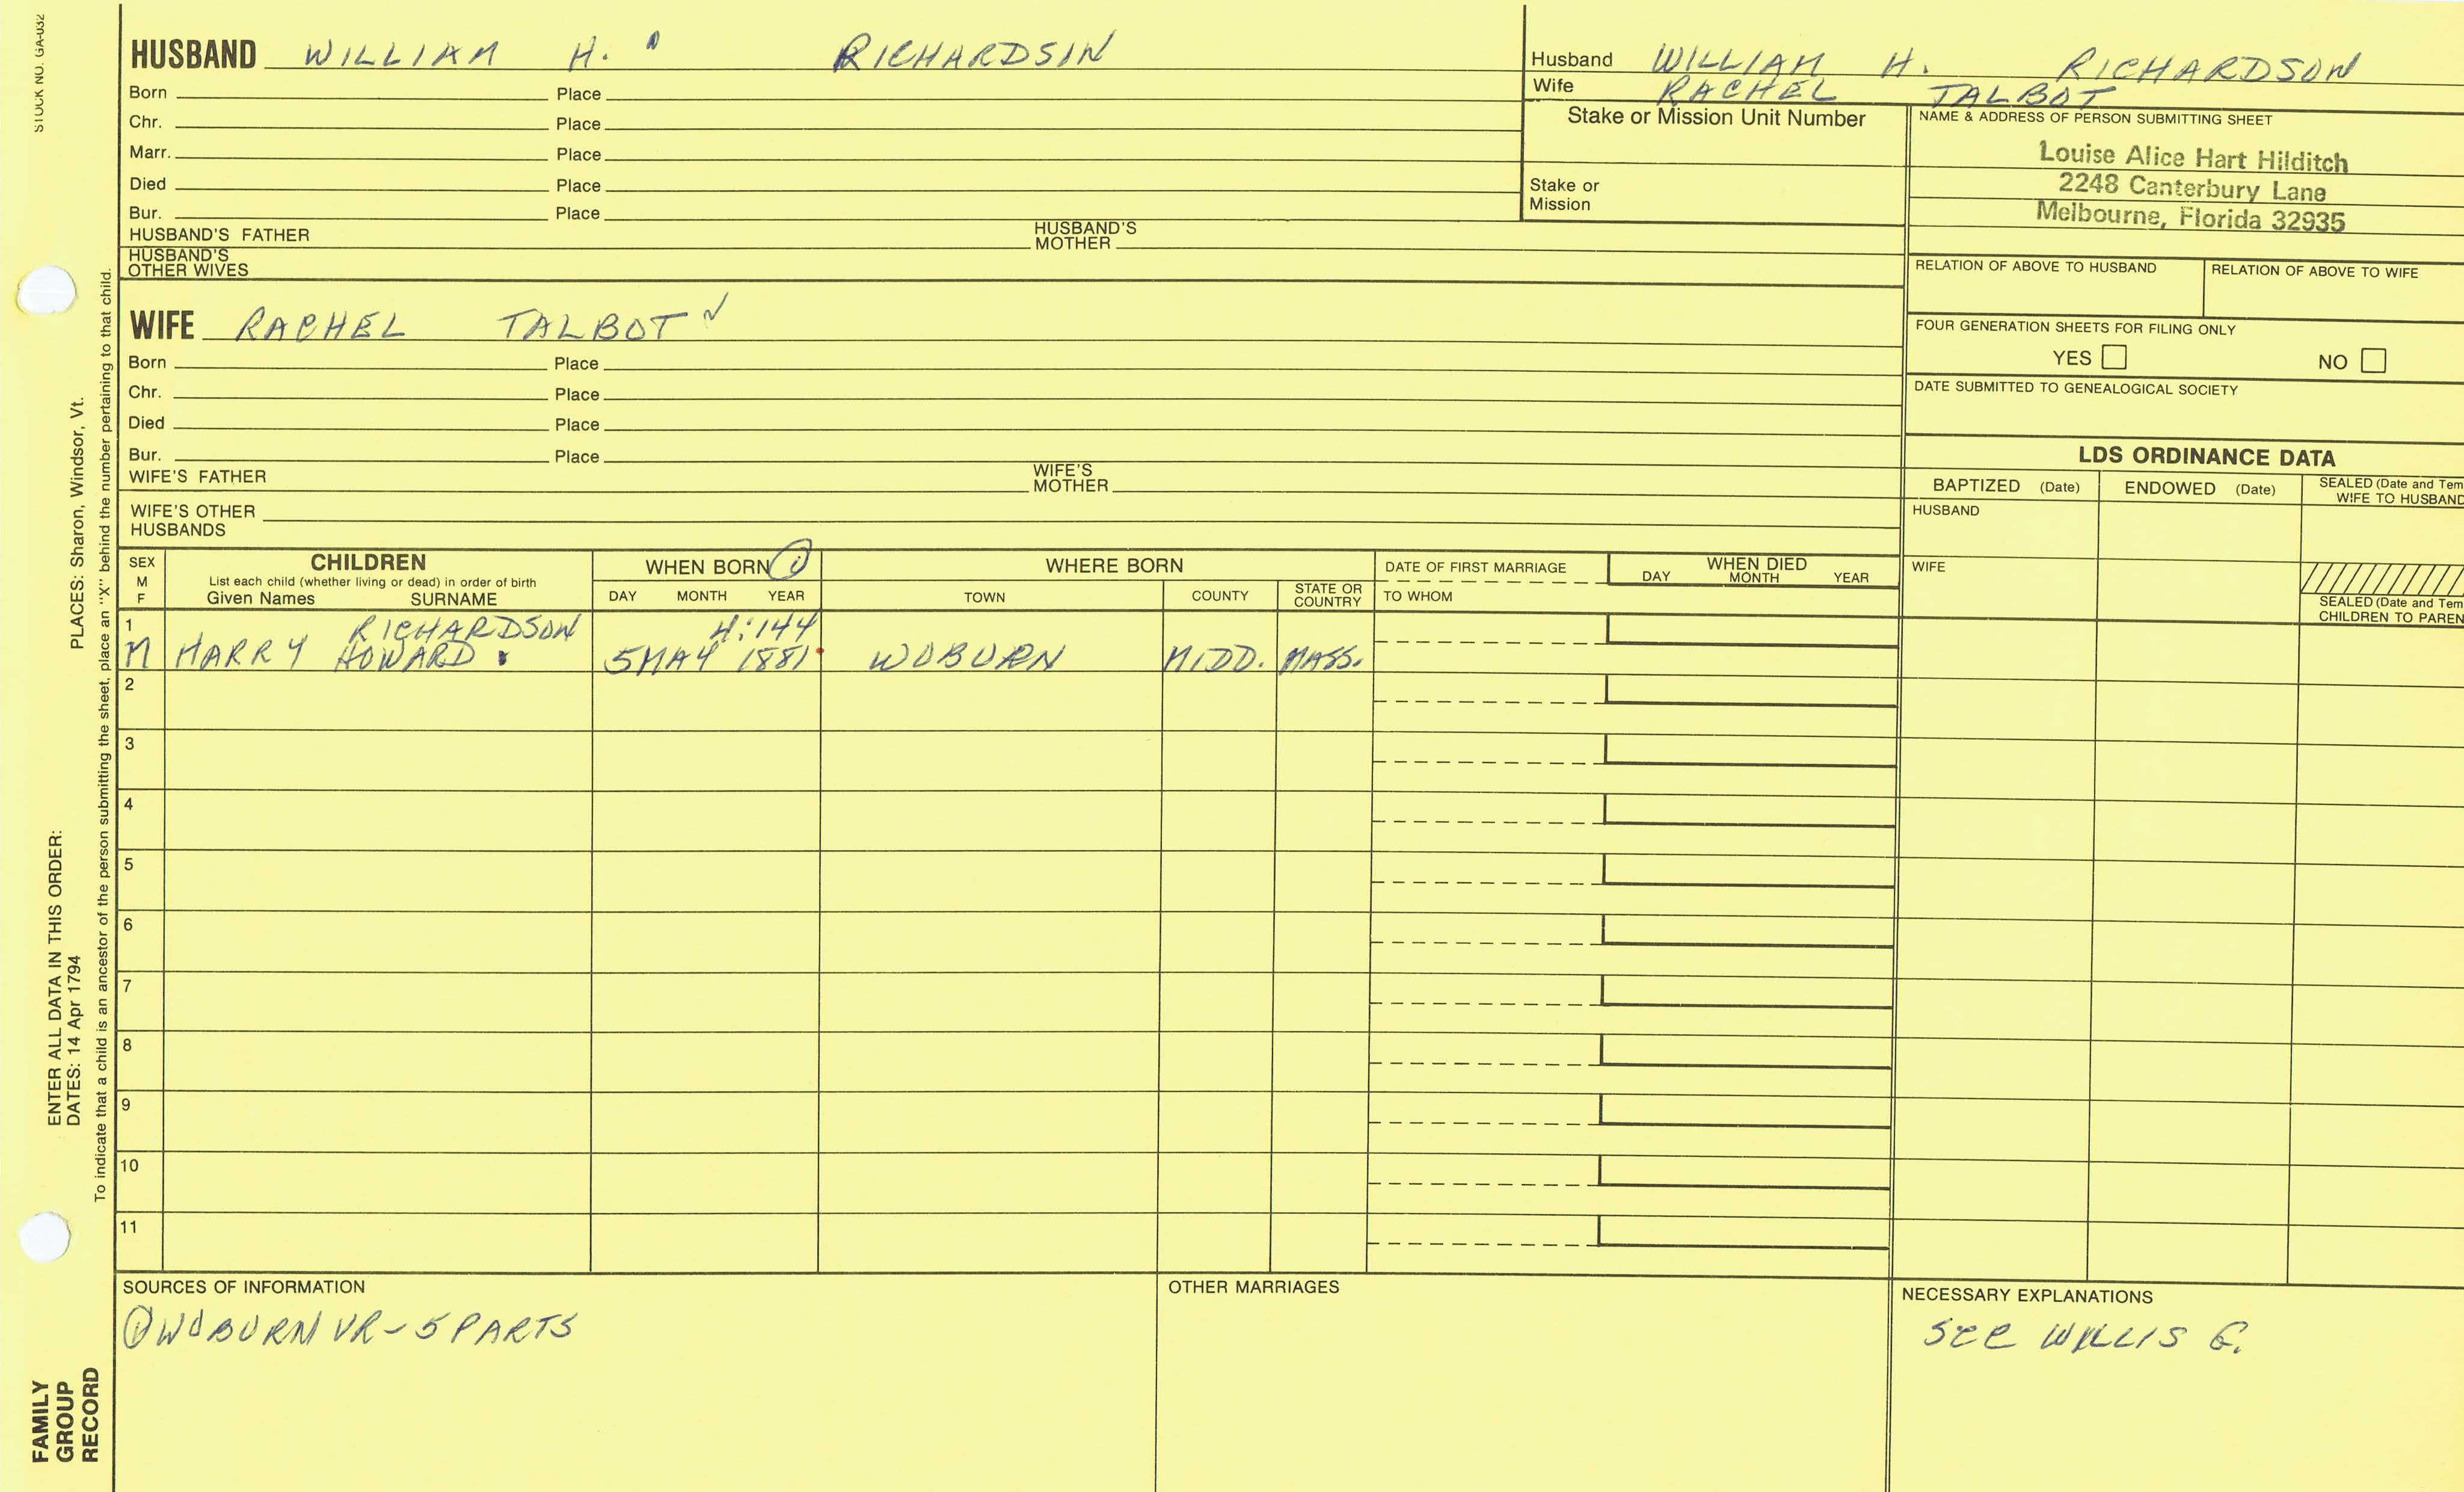 STOCK NO. GA-032
HUSBAND WILLIAM H. RICHARDSIN
Born Place
Chr. Place
Marr. Place
Died Place
Bur. Place
HUSBAND'S FATHER HUSBAND'S MOTHER
HUSBAND'S OTHER WIVES
Husband WILLIAM H. RICHARDSON
Wife RACHEL TALBOT
Stake or Mission Unit Number
Stake or Mission
NAME & ADDRESS OF PERSON SUBMITTING SHEET
Louise Alice Hart Hilditch
2248 Canterbury Lane
Melbourne, Florida 32935
RELATION OF ABOVE TO HUSBAND RELATION OF ABOVE TO WIFE
FOUR GENERATION SHEETS FOR FILING ONLY
YES NO
DATE SUBMITTED TO GENEALOGICAL SOCIETY
WIFE RACHEL TALBOT ✓
Born Place
Chr. Place
Died Place
Bur. Place
WIFE'S FATHER WIFE'S MOTHER
WIFE'S OTHER HUSBANDS
LDS ORDINANCE DATA
BAPTIZED (Date) ENDOWED (Date) SEALED (Date and Tem
WIFE TO HUSBAND
HUSBAND
WIFE
SEALED (Date and Tem
CHILDREN TO PAREN
SEX M F
CHILDREN
List each child (whether living or dead) in order of birth
Given Names SURNAME
WHEN BORN ①
DAY MONTH YEAR
WHERE BORN
TOWN COUNTY STATE OR COUNTRY
DATE OF FIRST MARRIAGE
TO WHOM
WHEN DIED
DAY MONTH YEAR
1 RICHARDSON 4:144
M HARRY HOWARD 5 MAY 1881 WOBURN MIDD. MASS.
2
3
4
5
6
7
8
9
10
11
SOURCES OF INFORMATION
① WOBURN VR - 5 PARTS
OTHER MARRIAGES
NECESSARY EXPLANATIONS
SEE WILLIS G.
PLACES: Sharon, Windsor, Vt.
ENTER ALL DATA IN THIS ORDER:
DATES: 14 Apr 1794
To indicate that a child is an ancestor of the person submitting the sheet, place an "X" behind the number pertaining to that child.
FAMILY
GROUP
RECORD